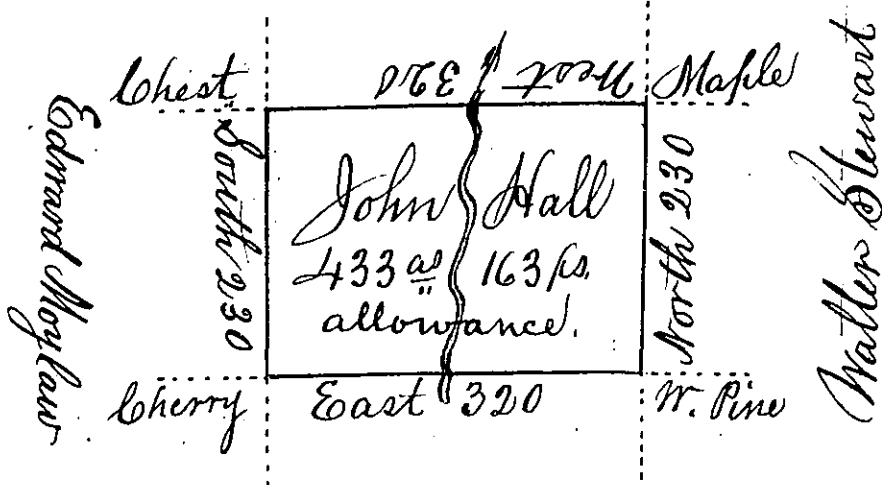 Chest
West 320
Maple
Edward Moylaw
South 230
John Hall
433 as 163 ps.
allowance.
North 230
Walter Stewart
Cherry
East 320
W. Pine